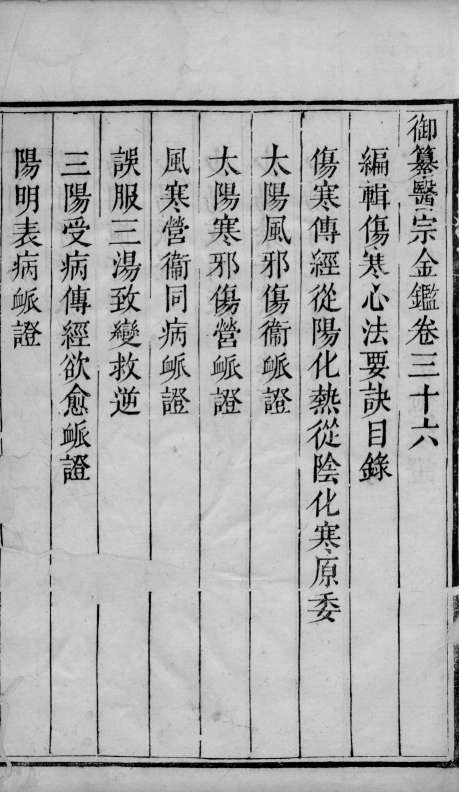 御纂醫宗金鑑卷三十六
編輯傷寒心法要訣目錄
傷寒傳經從陽化熱從陰化寒原委
太陽風邪傷衞脈證
太陽寒邪傷營脈證
風寒營衞同病脈證
誤服三湯致變救逆
三陽受病傳經欲愈脈證
陽明表病脈證